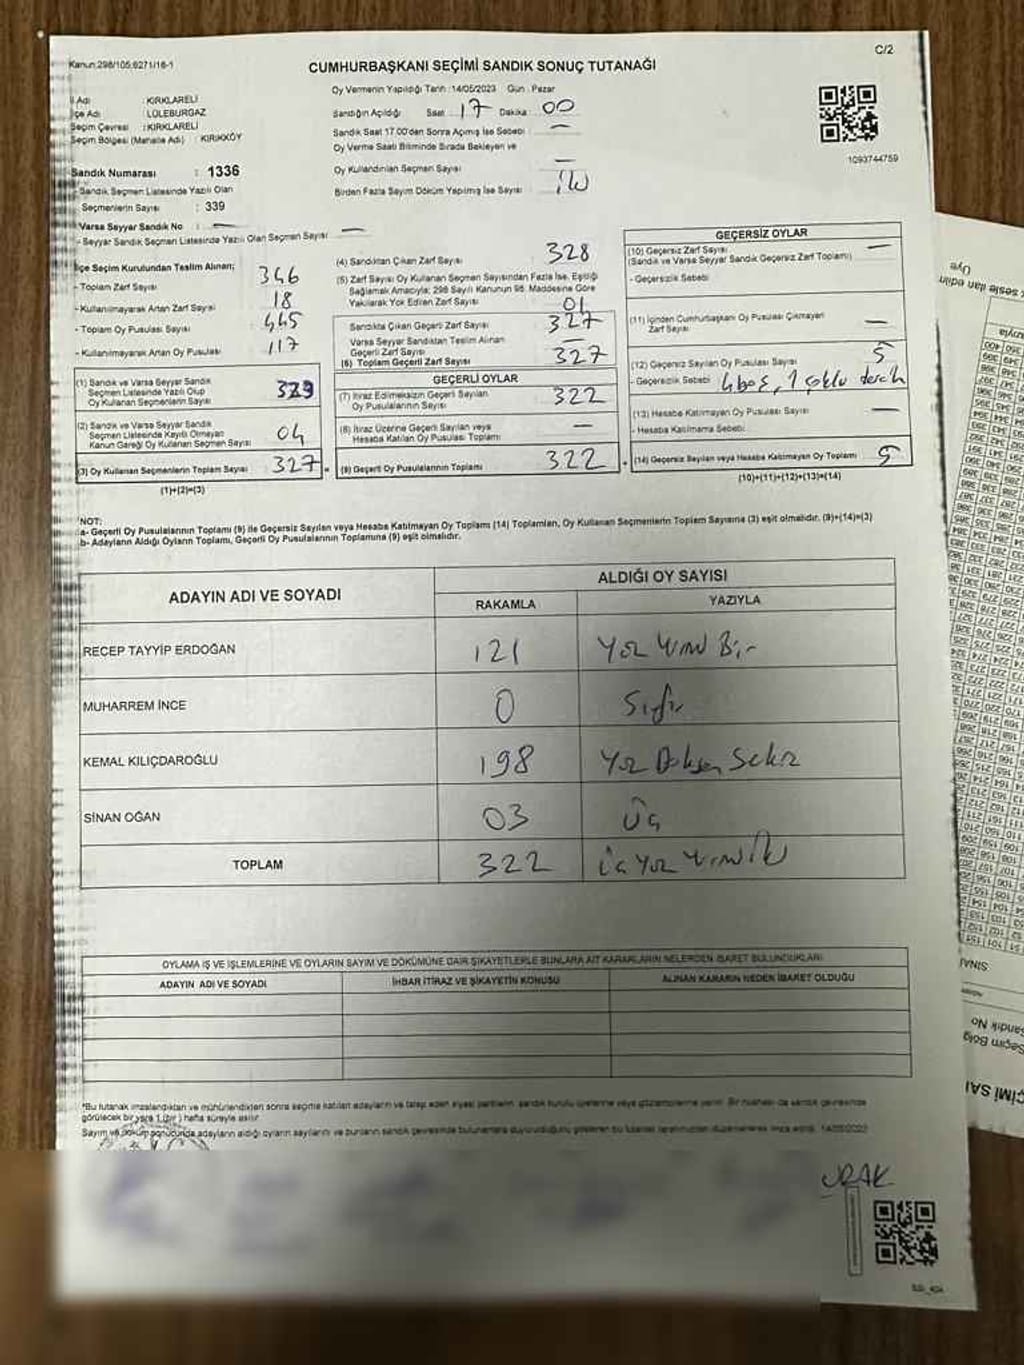 Kanun:298/105;6271/16-1
C/2
CUMHURBAŞKANI SEÇİMİ SANDIK SONUÇ TUTANAĞI
İl Adı : KIRKLARELİ
İlçe Adı : LÜLEBURGAZ
Seçim Çevresi : KIRKLARELİ
Seçim Bölgesi (Mahalle Adı) : KIRIKKÖY
Sandık Numarası : 1336
- Sandık Seçmen Listesinde Yazılı Olan
Seçmenlerin Sayısı : 339
Varsa Seyyar Sandık No : —
- Seyyar Sandık Seçmen Listesinde Yazılı Olan Seçmen Sayısı : —
Oy Vermenin Yapıldığı Tarih :14/05/2023 Gün : Pazar
Sandığın Açıldığı Saat : 17 Dakika : 00
Sandık Saat 17.00'den Sonra Açmış İse Sebebi : —
Oy Verme Saati Bitiminde Sırada Bekleyen ve
Oy Kullandırılan Seçmen Sayısı : —
Birden Fazla Sayım Döküm Yapılmış İse Sayısı :
1093744759
İlçe Seçim Kurulundan Teslim Alınan;
- Toplam Zarf Sayısı : 346
- Kullanılmayarak Artan Zarf Sayısı : 18
- Toplam Oy Pusulası Sayısı : 445
- Kullanılmayarak Artan Oy Pusulası : 117
(1) Sandık ve Varsa Seyyar Sandık
Seçmen Listesinde Yazılı Olup
Oy Kullanan Seçmenlerin Sayısı
(2) Sandık ve Varsa Seyyar Sandık
Seçmen Listesinde Kayıtlı Olmayan
Kanun Gereği Oy Kullanan Seçmen Sayısı 04
(3) Oy Kullanan Seçmenlerin Toplam Sayısı 327
(1)+(2)=(3)
(4) Sandıktan Çıkan Zarf Sayısı : 328
(5) Zarf Sayısı Oy Kullanan Seçmen Sayısından Fazla İse, Eşitliği
Sağlamak Amacıyla; 298 Sayılı Kanunun 98. Maddesine Göre
Yakılarak Yok Edilen Zarf Sayısı : 01
Sandıkta Çıkan Geçerli Zarf Sayısı : 327
Varsa Seyyar Sandıktan Teslim Alınan
Geçerli Zarf Sayısı : —
(6) Toplam Geçerli Zarf Sayısı : 327
GEÇERLİ OYLAR
(7) İtiraz Edilmeksizin Geçerli Sayılan
Oy Pusulasının Sayısı : 322
(8) İtiraz Üzerine Geçerli Sayılan veya
Hesaba Katılan Oy Pusulası Toplamı : —
(9) Geçerli Oy Pusulalarının Toplamı : 322
GEÇERSİZ OYLAR
(10) Geçersiz Zarf Sayısı : —
(Sandık ve Varsa Seyyar Sandık Geçersiz Zarf Toplamı)
- Geçersizlik Sebebi :
(11) İçinden Cumhurbaşkanı Oy Pusulası Çıkmayan
Zarf Sayısı : —
(12) Geçersiz Sayılan Oy Pusulası Sayısı : 5
- Geçersizlik Sebebi : 4 boş, 1 çoklu tercih
(13) Hesaba Katılmayan Oy Pusulası Sayısı : —
- Hesaba Katılmama Sebebi :
(14) Geçersiz Sayılan veya Hesaba Katılmayan Oy Toplamı : 5
(10)+(11)+(12)+(13)=(14)
NOT:
a- Geçerli Oy Pusulalarının Toplamı (9) ile Geçersiz Sayılan veya Hesaba Katılmayan Oy Toplamı (14) Toplamları, Oy Kullanan Seçmenlerin Toplam Sayısına (3) eşit olmalıdır. (9)+(14)=(3)
b- Adayların Aldığı Oyların Toplamı, Geçerli Oy Pusulalarının Toplamına (9) eşit olmalıdır.
ADAYIN ADI VE SOYADI
ALDIĞI OY SAYISI
RAKAMLA YAZIYLA
RECEP TAYYİP ERDOĞAN 121 Yüz Yirmi Bir
MUHARREM İNCE 0 Sıfır
KEMAL KILIÇDAROĞLU 198 Yüz Doksan Sekiz
SİNAN OĞAN 03 Üç
TOPLAM 322 Üç Yüz Yirmi İki
OYLAMA İŞ VE İŞLEMLERİNE VE OYLARIN SAYIM VE DÖKÜMÜNE DAİR ŞİKAYETLERLE BUNLARA AİT KARARLARIN NELERDEN İBARET BULUNDUKLARI
ADAYIN ADI VE SOYADI İHBAR İTİRAZ VE ŞİKAYETİN KONUSU ALINAN KARARIN NEDEN İBARET OLDUĞU
*Bu tutanak imzalandıktan ve mühürlendikten sonra seçime katılan adayların ve talep eden siyasi partilerin sandık kurulu üyelerine veya gözlemcilerine verilir. Bir nüshası da sandık çevresinde
görülecek bir yere 1 (bir ) hafta süreyle asılır.